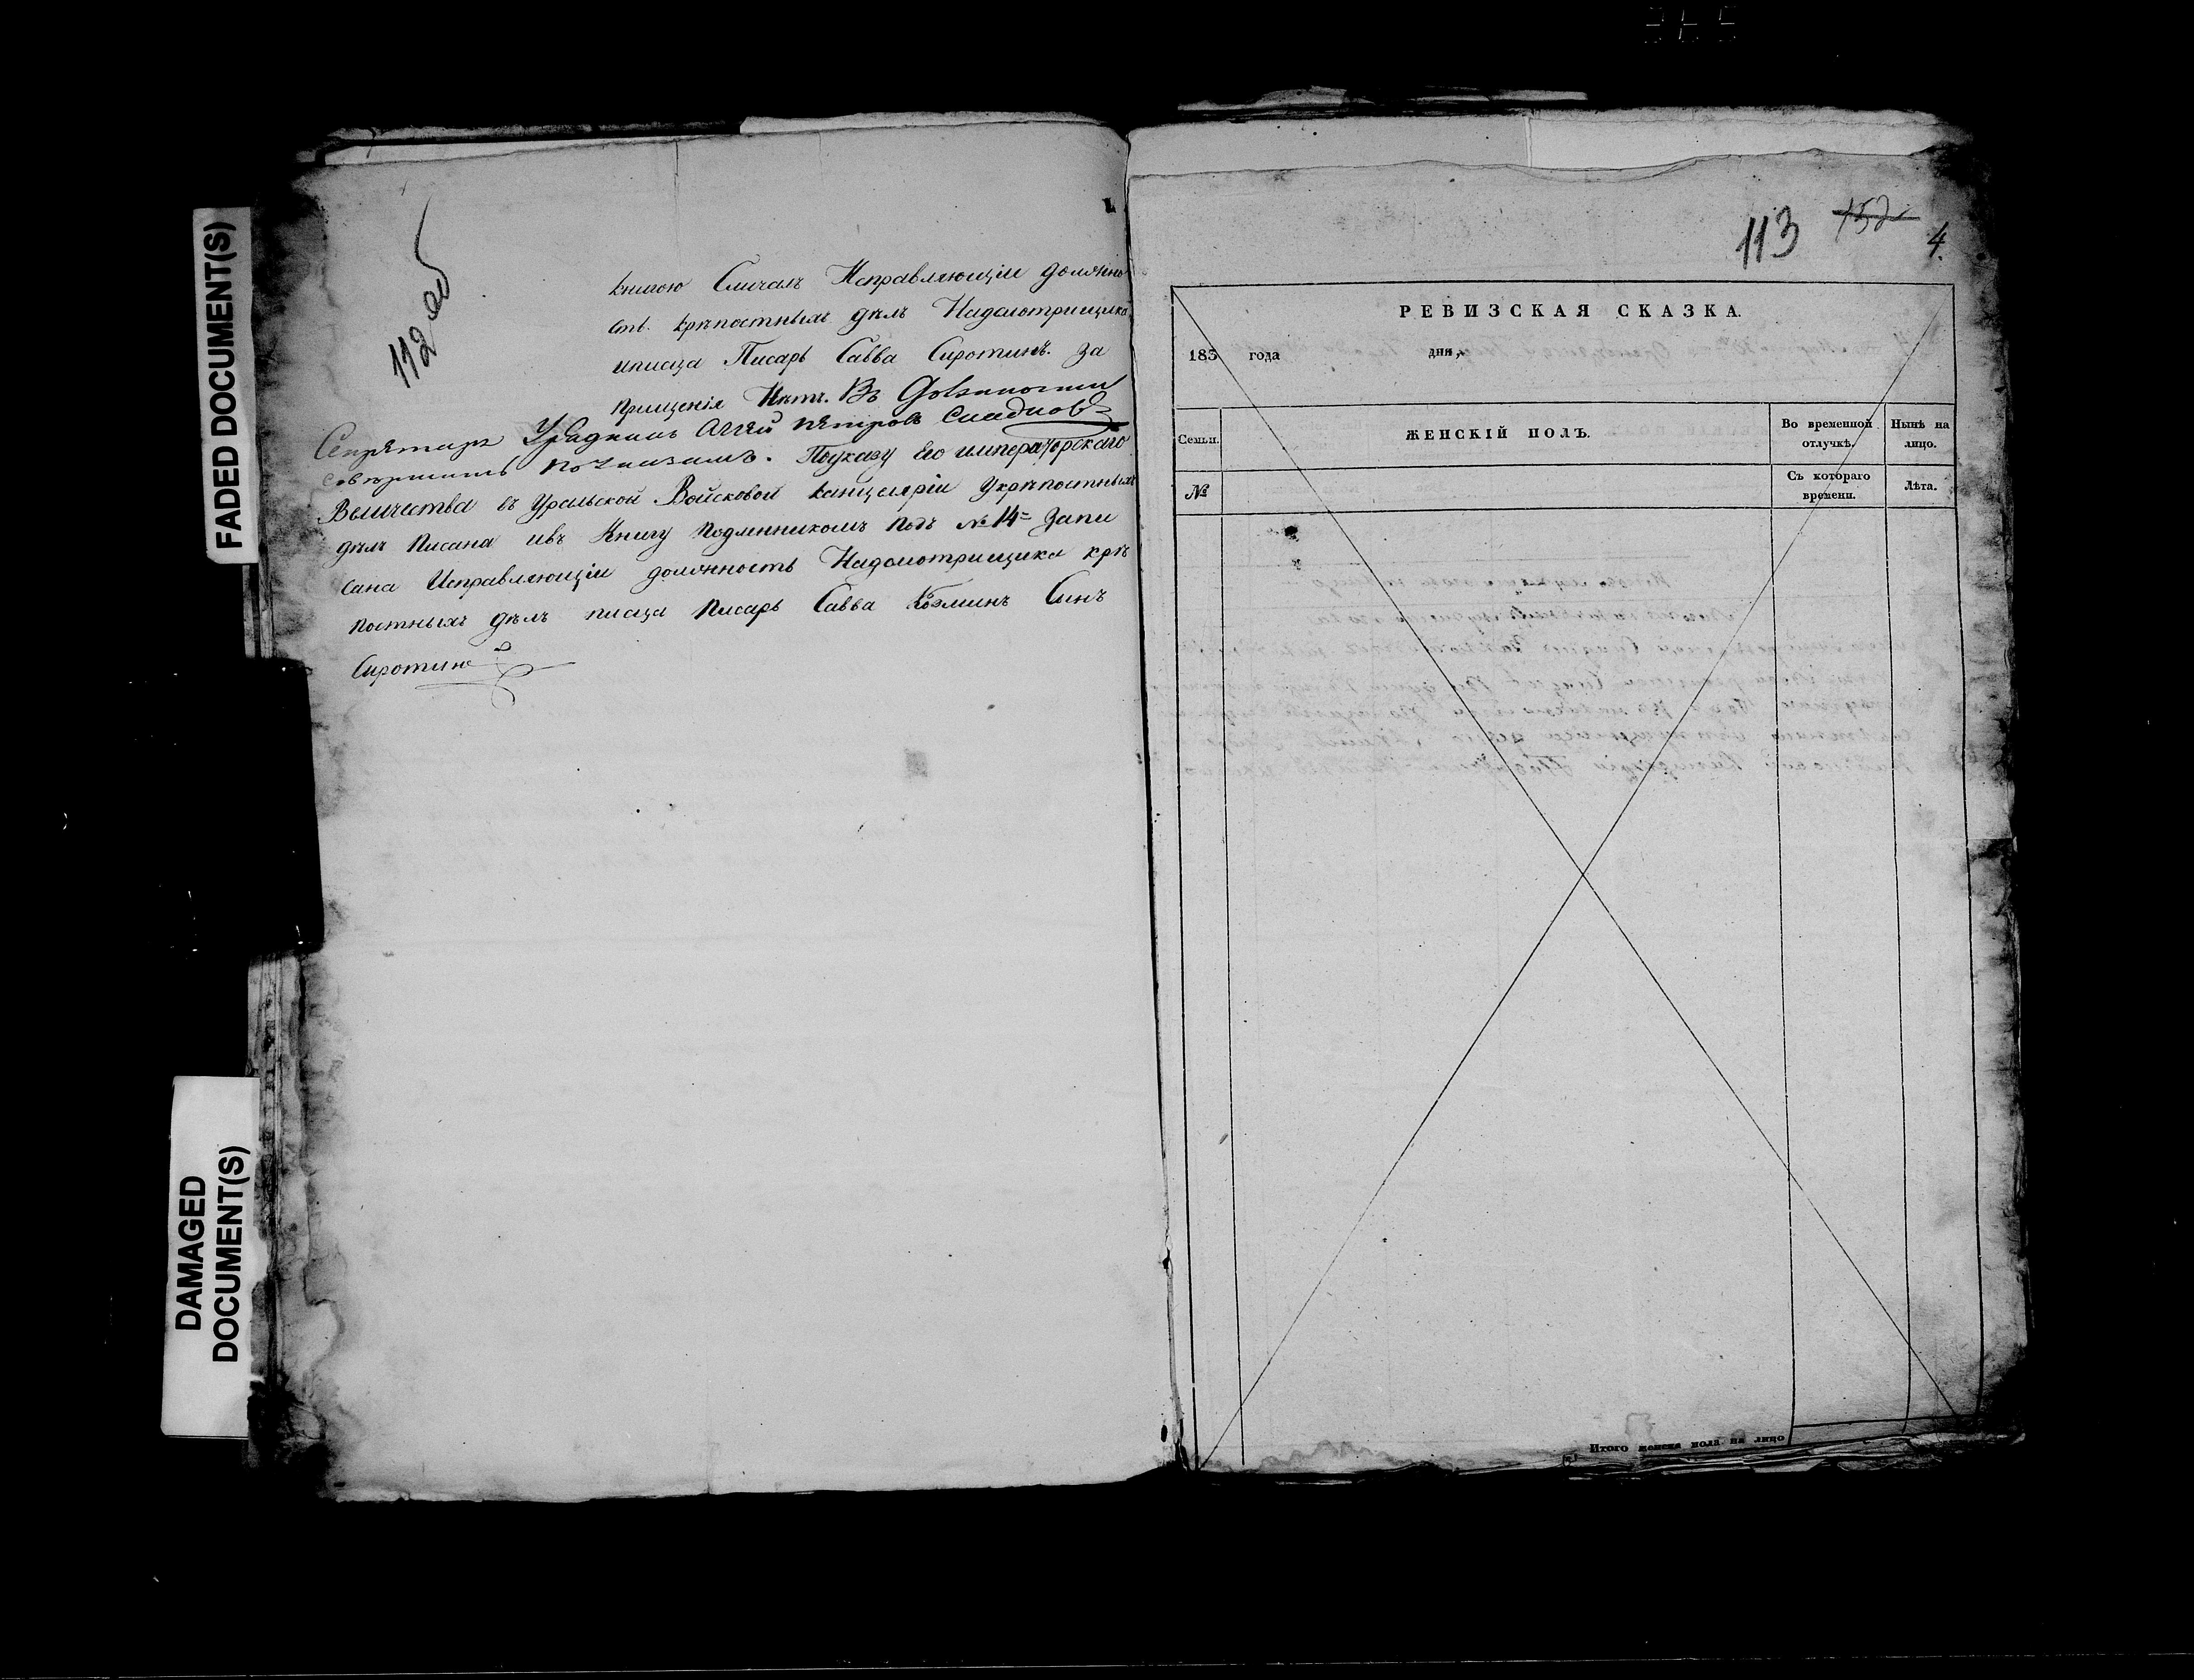 FADED DOCUMENT(S)
DAMAGED
DOCUMENT(S)
112 об
книгою Сличалъ Исправляющій должно
сть крѣпостныхъ дѣлъ Надсмотрищика
иписца Писарь Савва Сиротинъ. За
прещенія Нѣтъ. Въ Должности
Секрѣтаря Урядникъ Аггѣй пѣтровъ
совѣршить по указамъ. Поуказу Его императорскаго
Величества въ Уральской Войсковой канцеляріи Укрѣпостныхъ
дѣлъ писана ивъ Книгу подлинникомъ подъ № 14 = запи
сана Исправляющіи должность Надсмотрищика крѣ
постныхъ дѣлъ писца писарь Савва Козминъ Сынъ
Сиротинъ
113 152 4.
РЕВИЗСКАЯ СКАЗКА.
185 года дня,
Семьи. ЖЕНСКІЙ ПОЛЪ. Во временной отлучкѣ. Нынѣ на лицо.
№ Съ котораго времени. Лѣта.
Итого женска пола на лицо